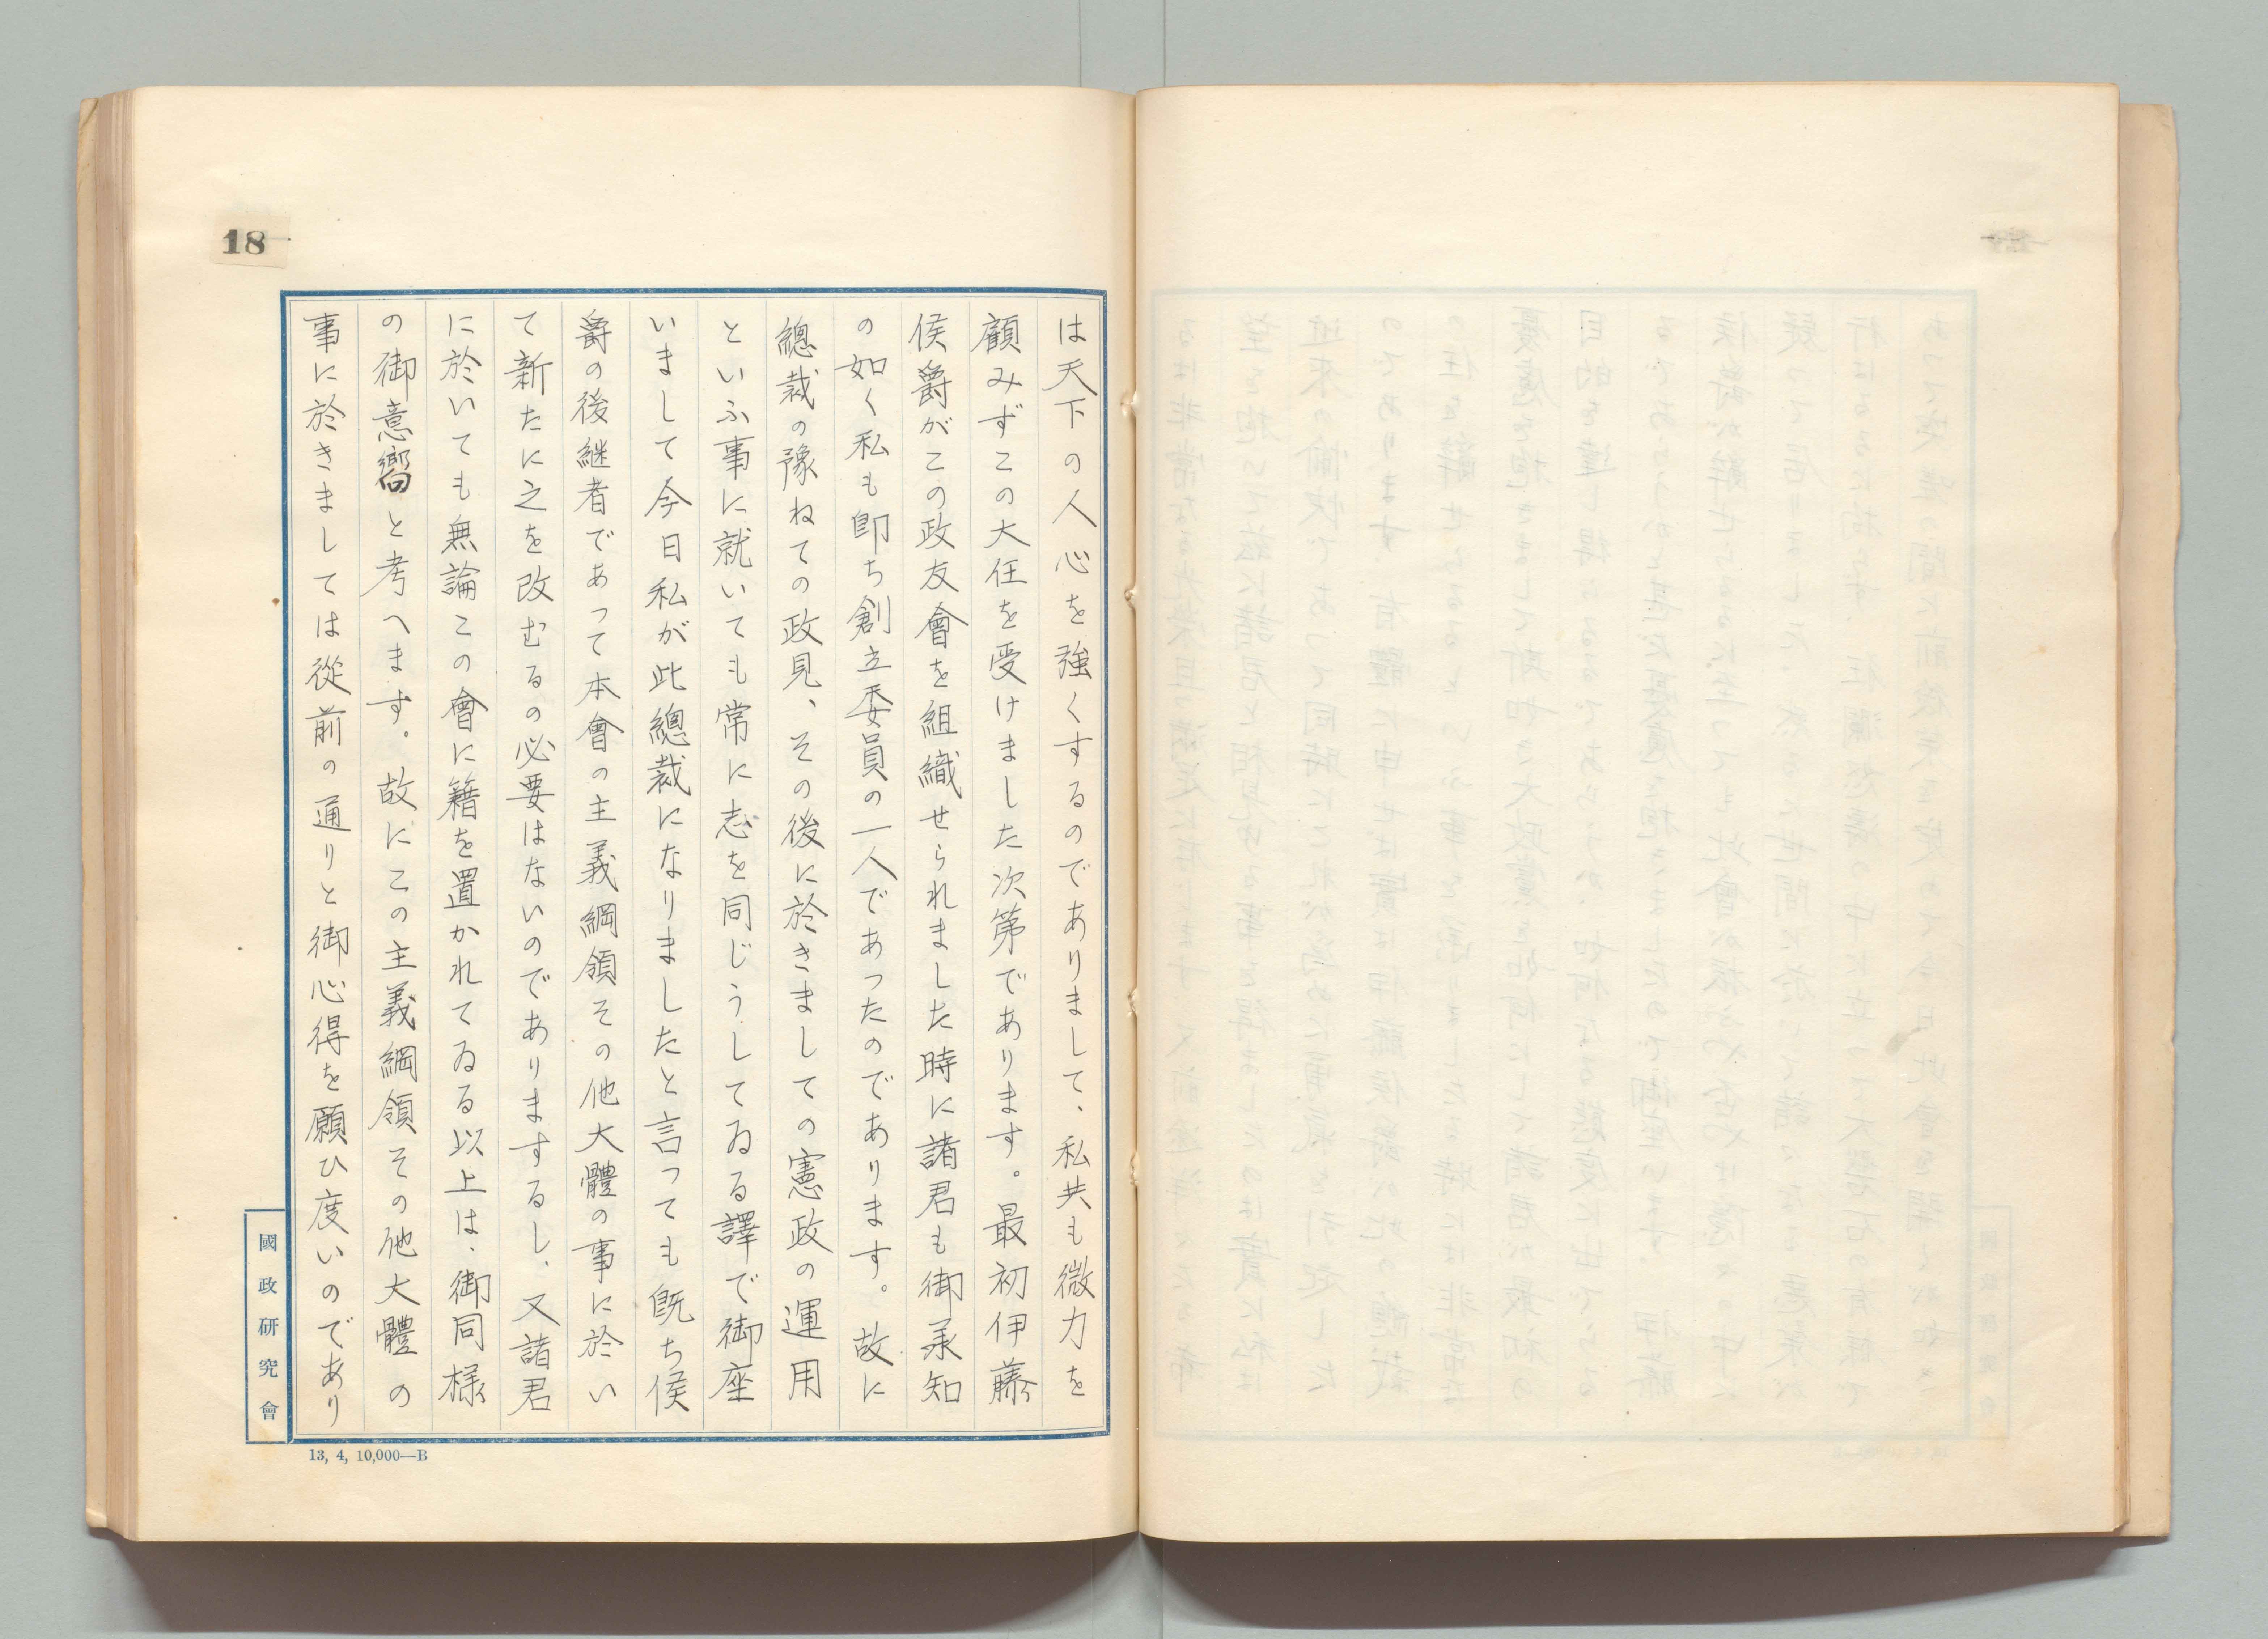 18
は天下の人心を強くするのでありまして、私共も微力を
顧みずこの大任を受けました次第であります。最初伊藤
侯爵がこの政友會を組織せられました時に諸君も御承知
の如く私も卽ち創立委員の一人であったのであります。故に
總裁の豫ねての政見、その後に於きましての憲政の運用
といふ事に就いても常に志を同じうしてゐる譯で御座
いまして今日私が此總裁になりましたと言っても旣ち侯
爵の後継者であって本會の主義綱領その他大體の事に於い
て新たに之を改むるの必要はないのでありまするし、又諸君
に於いても無論この會に籍を置かれてゐる以上は、御同様
の御意嚮と考へます。故にこの主義綱領その他大體の
事に於きましては從前の通りと御心得を願ひ度いのであり
國政研究會
13, 4, 10,000—B